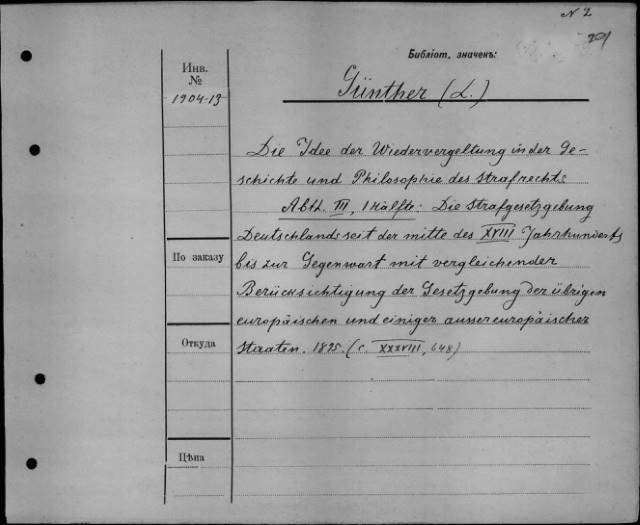 N 2
291
Библіот. значекъ:
Инв.
№
1904-13
Günther (L.)
Die Idee der Wiedervergeltung in der Ge-
schichte und Philosophie des Strafrechts
Abth. III, 1 Hälfte: Die Strafgesetzgebung
Deutschlands seit der mitte des XVIII Jahrhunderts
По заказу
bis zur Gegenwart mit vergleichender
Berücksichtigung der Gesetzgebung der übrigen
europäischen und einiger aussereuropäischer
Откуда
Staaten. 1895. (c. XXXVIII, 648)
Цѣна